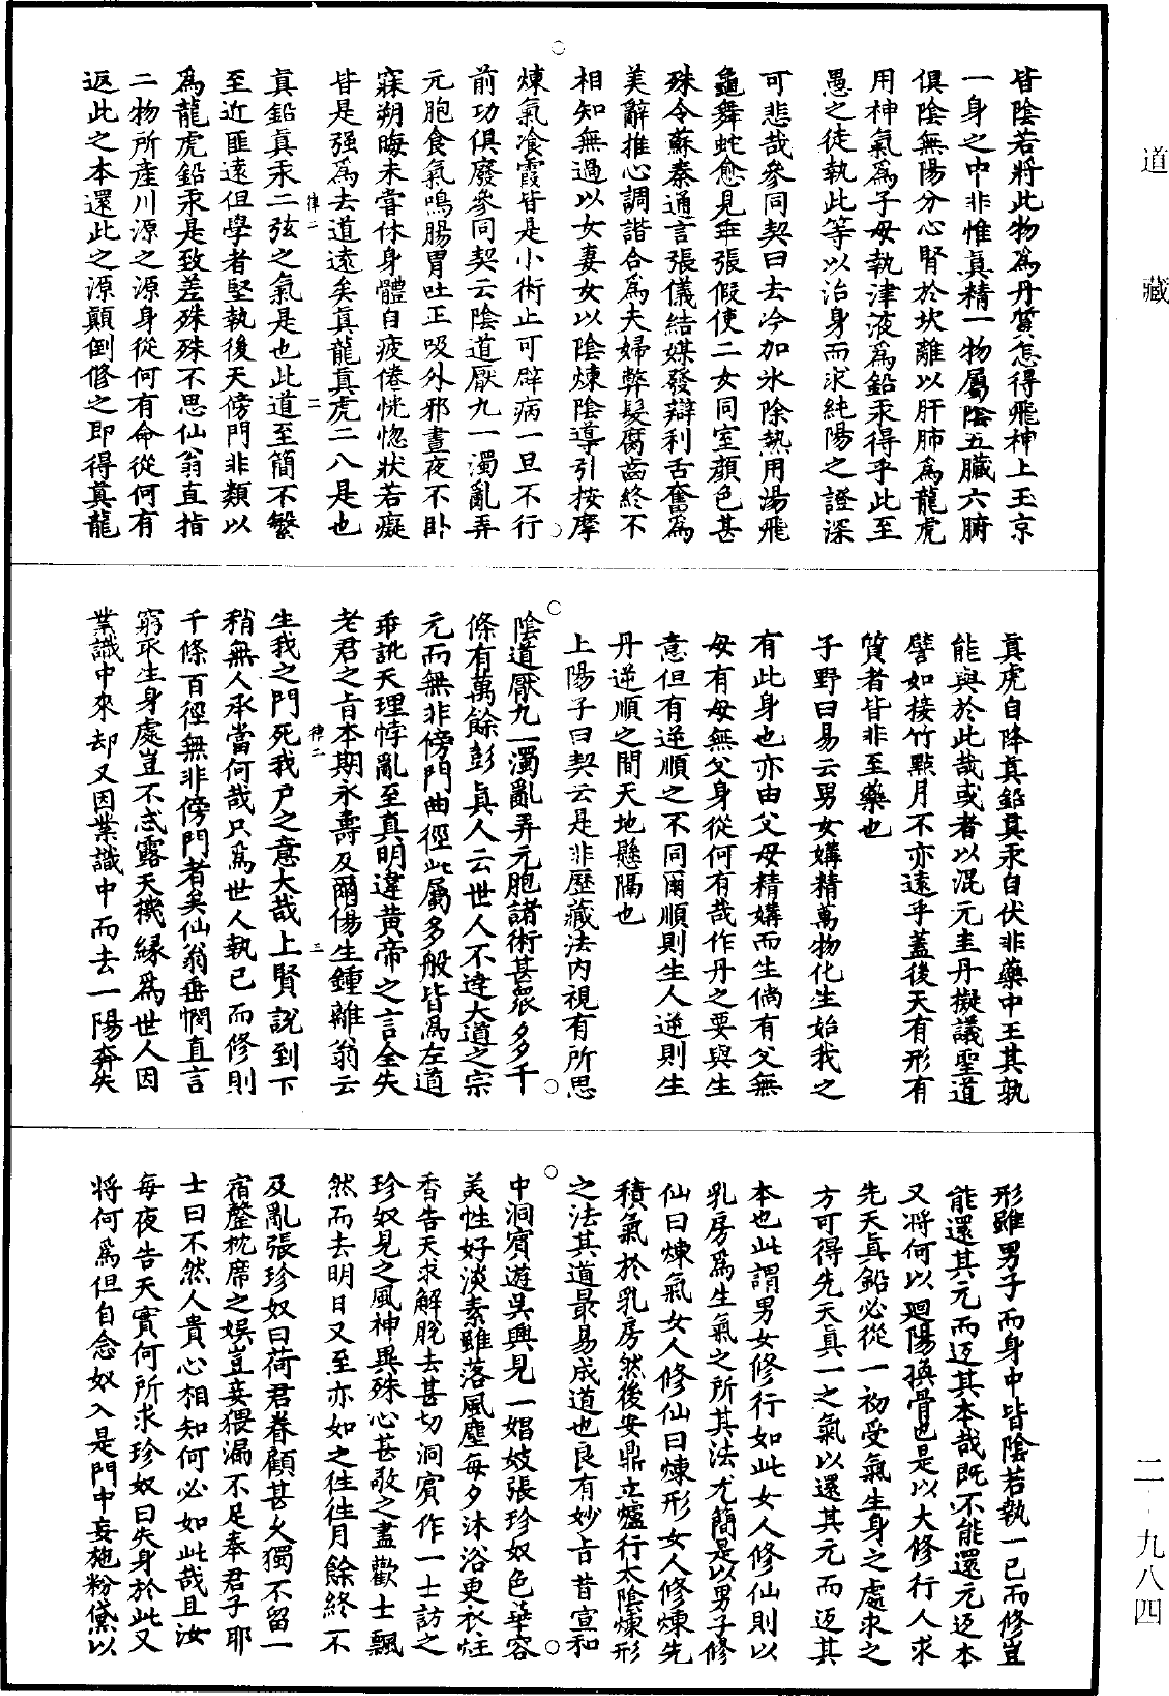 道藏
二·九八四
皆陰若將此物爲丹質怎得飛神上玉京
一身之中非惟眞精一物屬陰五臟六腑
俱陰無陽分心腎於坎離以肝肺爲龍虎
用神氣爲子母執津液爲鉛汞得乎此至
愚之徒執此等以治身而求純陽之證深
可悲哉參同契曰去冷加氷除熱用湯飛
龜舞蛇愈見乖張假使二女同室顔色甚
殊令蘇秦通言張儀結媒發辯利舌奮爲
美辭推心調諧合爲夫婦弊髮腐齒終不
相知無過以女妻女以陰煉陰導引按摩
煉氣飡霞皆是小術止可辟病一旦不行
前功俱廢參同契云陰道厭九一濁亂弄
元胞食氣鳴腸胃吐正吸外邪晝夜不卧
寐朔晦未甞休身體自疲倦恍惚狀若癡
皆是强爲去道遠矣眞龍眞虎二八是也
律二 二
眞鉛眞汞二弦之氣是也此道至簡不繁
至近匪遠但學者堅執後天傍門非類以
爲龍虎鉛汞是致差殊殊不思仙翁直指
二物所産川源之源身從何有命從何有
返此之本還此之源顚倒修之即得眞龍
眞虎自降眞鉛眞汞自伏非藥中王其孰
能與於此哉或者以混元圭丹擬議聖道
譬如接竹㸃月不亦遠乎蓋後天有形有
質者皆非至藥也
子野曰易云男女媾精萬物化生始我之
有此身也亦由父母精媾而生倘有父無
母有母無父身從何有哉作丹之要與生
意但有逆順之不同爾順則生人逆則生
丹逆順之間天地懸隔也
上陽子曰契云是非歷藏法內視有所思
陰道厭九一濁亂弄元胞諸術甚衆多千
條有萬餘彭眞人云世人不達大道之宗
元而無非傍門曲徑此屬多般皆爲左道
乖訛天理悖亂至眞明違黄帝之言全失
老君之旨本期永壽及爾傷生鍾離翁云
律二 三
生我之門死我户之意大哉上賢說到下
稍無人承當何哉只爲世人執己而修則
千條百徑無非傍門者矣仙翁垂憫直言
窮取生身處豈不忒露天機縁爲世人因
業識中來却又因業識中而去一陽奔失
形雖男子而身中皆陰若執一己而修豈
能還其元而返其本哉既不能還元返本
又將何以廻陽換骨也是以大修行人求
先天眞鉛必從一初受氣生身之處求之
方可得先天眞一之氣以還其元而返其
本也此謂男女修行如此女人修仙則以
乳房爲生氣之所其法尤簡是以男子修
仙曰煉氣女人修仙曰煉形女人修煉先
積氣於乳房然後安鼎立爐行太陰煉形
之法其道最易成道也良有妙旨昔宣和
中洞賓遊吳興見一娼妓張珍奴色華容
美性好淡素雖落風塵每夕沐浴更衣炷
香告天求解脫去甚切洞賓作一士訪之
珍奴見之風神異殊心甚敬之盡歡士飄
然而去明日又至亦如之徃徃月餘終不
及亂張珍奴曰荷君眷顧甚久獨不留一
宿罄枕席之娛豈妾猥漏不足奉君子耶
士曰不然人貴心相知何必如此哉且汝
每夜告天實何所求珍奴曰失身於此又
將何爲但自念奴入是門中妄施粉黛以